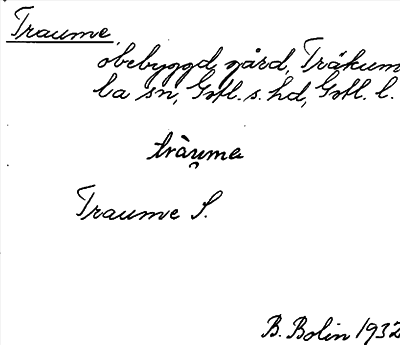 Traume,
obebyggd gård, Träkum
la sn, Gotl. s. hd, Gotl. l.
tràu̯mə
Traume S.
B. Bolin 1932